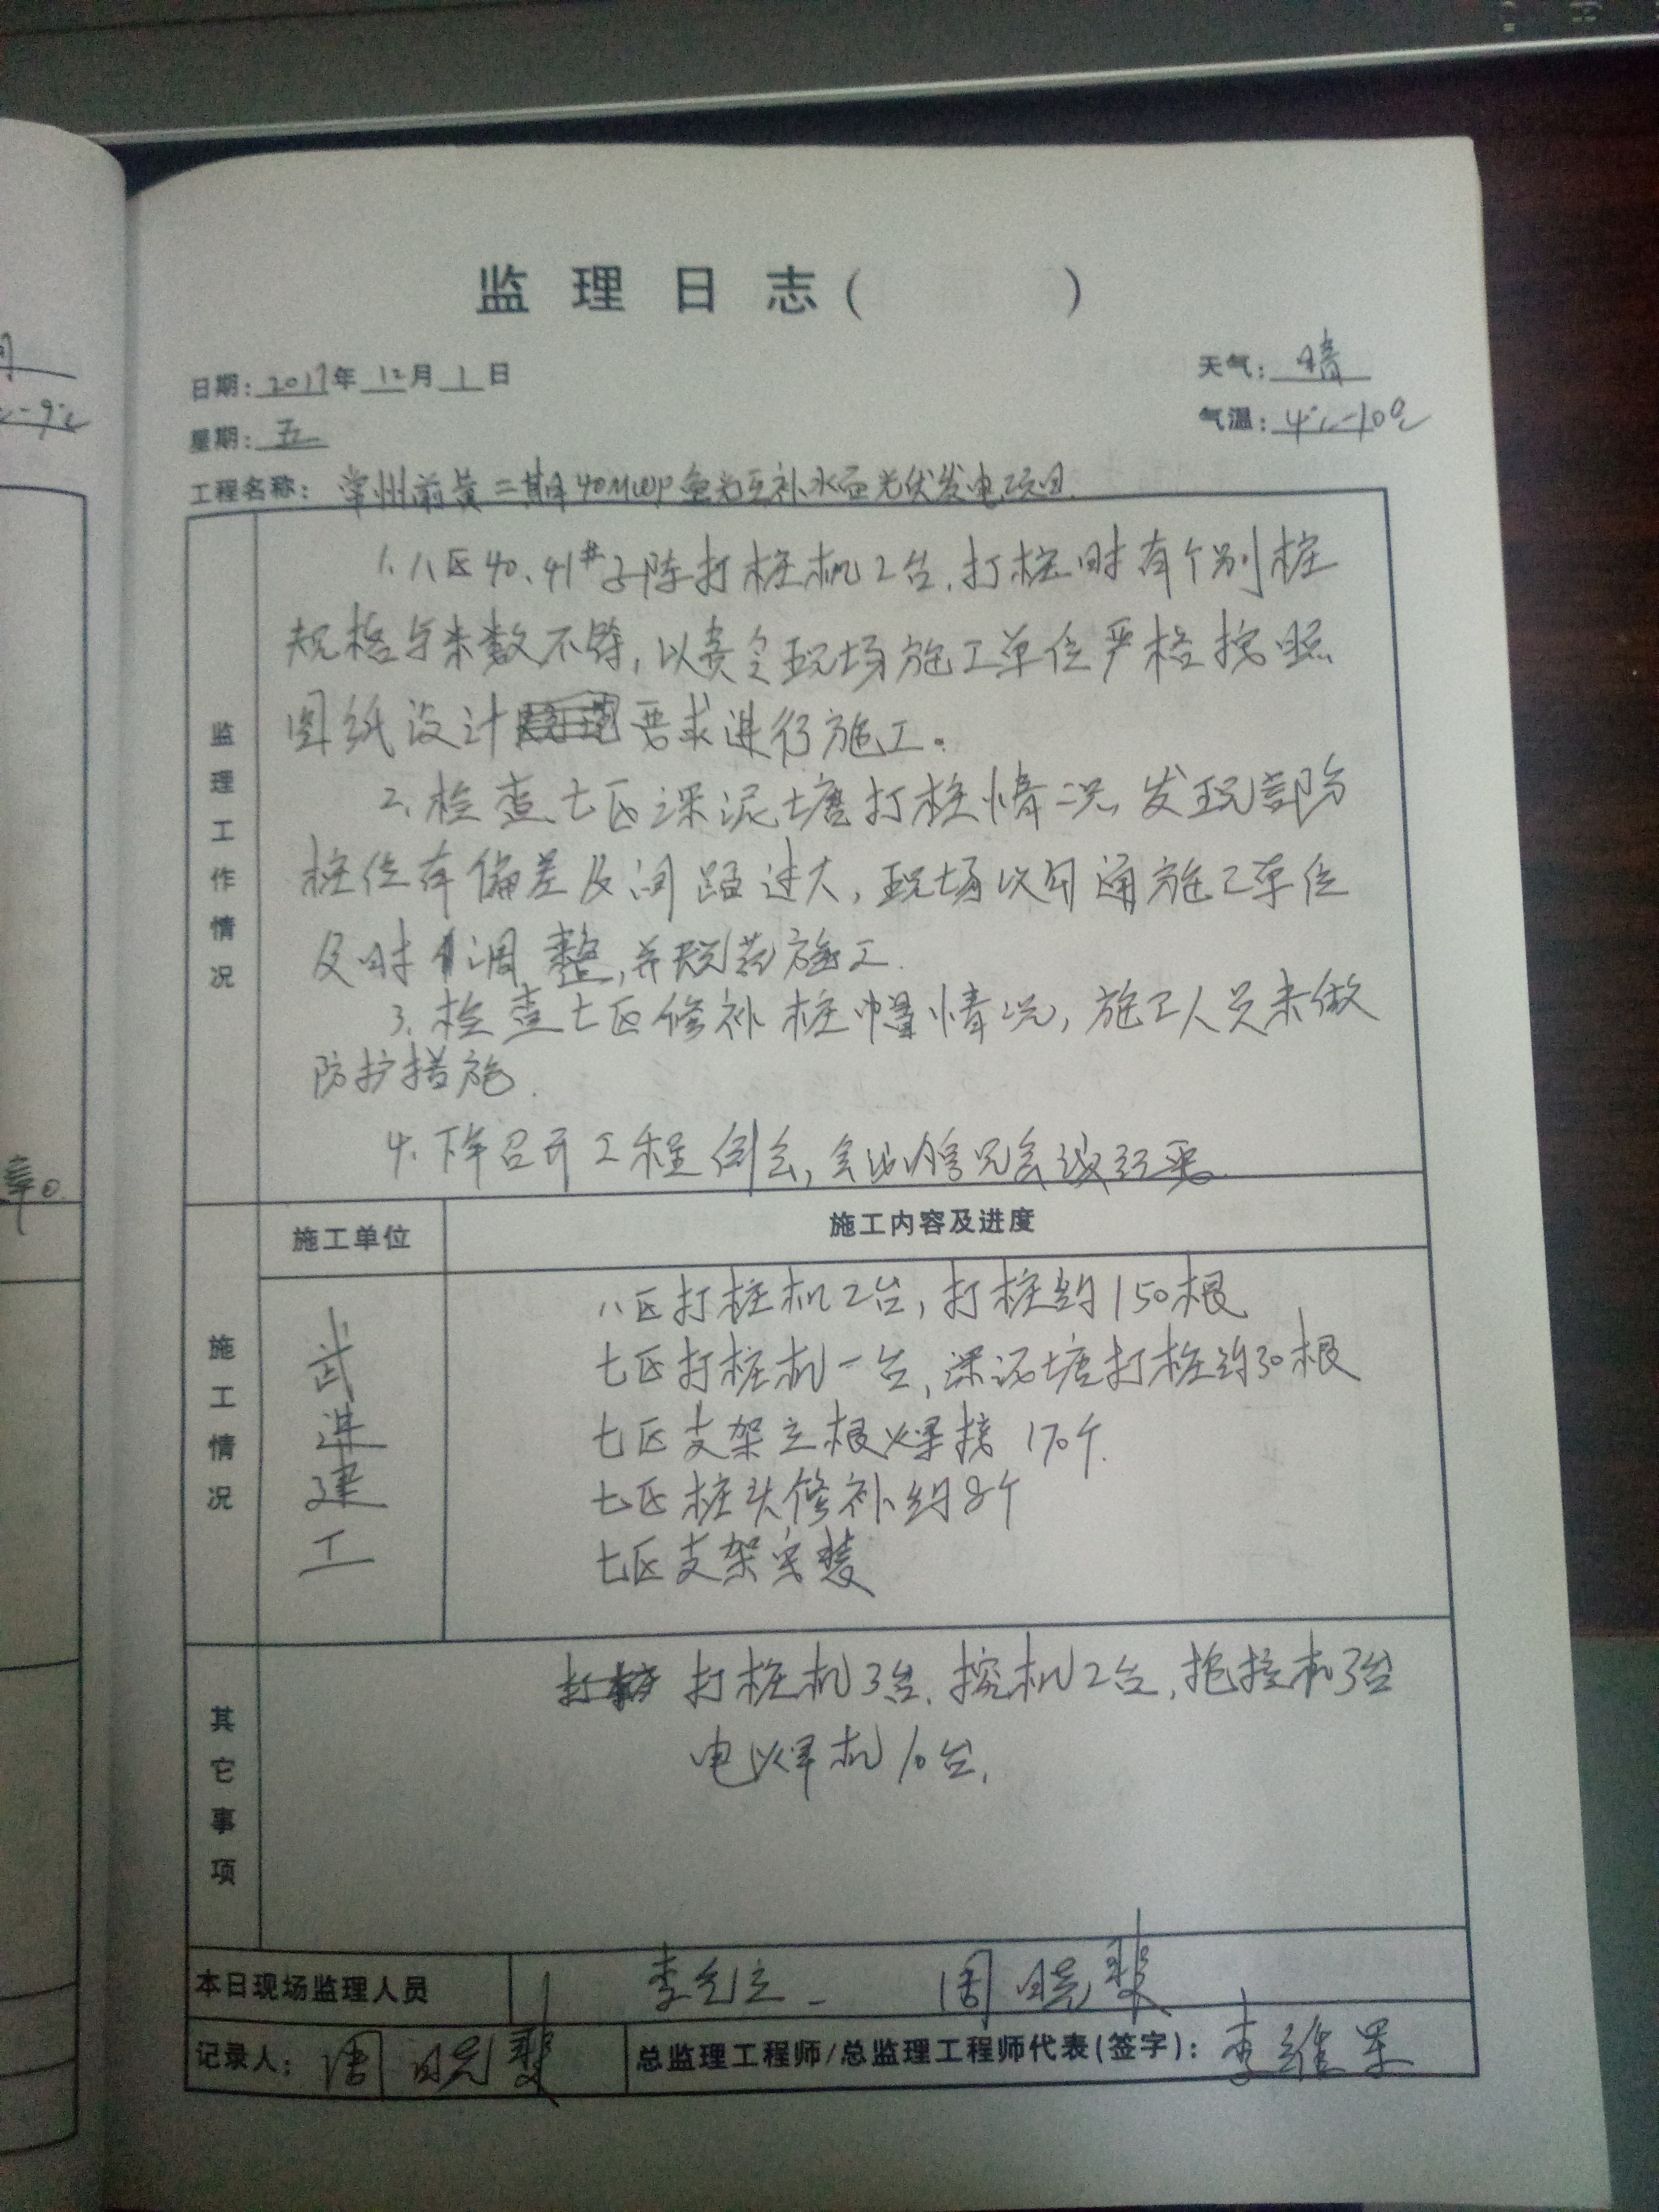 监理日志( )
日期:2017年12月1日
天气:晴
星期:五
气温:4℃-10℃
工程名称:常州前黄二期40MWP鱼光互补水面光伏发电项目.
监理工作情况
1.八区40、41#子阵打桩机2台,打桩时有个别桩
规格与米数不符,以责令现场施工单位严格按照
图纸设计要求进行施工。
2.检查七区深泥塘打桩情况,发现部份
桩位有偏差及间距过大,现场以勾通施工单位
及时调整,并规范施工.
3.检查七区修补桩帽情况,施工人员未做
防护措施.
4.下午召开工程例会,会议情况会议纪要.
施工情况
施工单位
施工内容及进度
武进建工
八区打桩机2台,打桩约150根
七区打桩机一台,深泥塘打桩约30根
七区支架立根焊接170个.
七区桩头修补约8个
七区支架安装
其它事项
打桩机3台.挖机2台,机3台
电焊机10台.
本日现场监理人员
李 周晓斐
记录人:周晓斐
总监理工程师/总监理工程师代表(签字):李维
c-9℃
章。